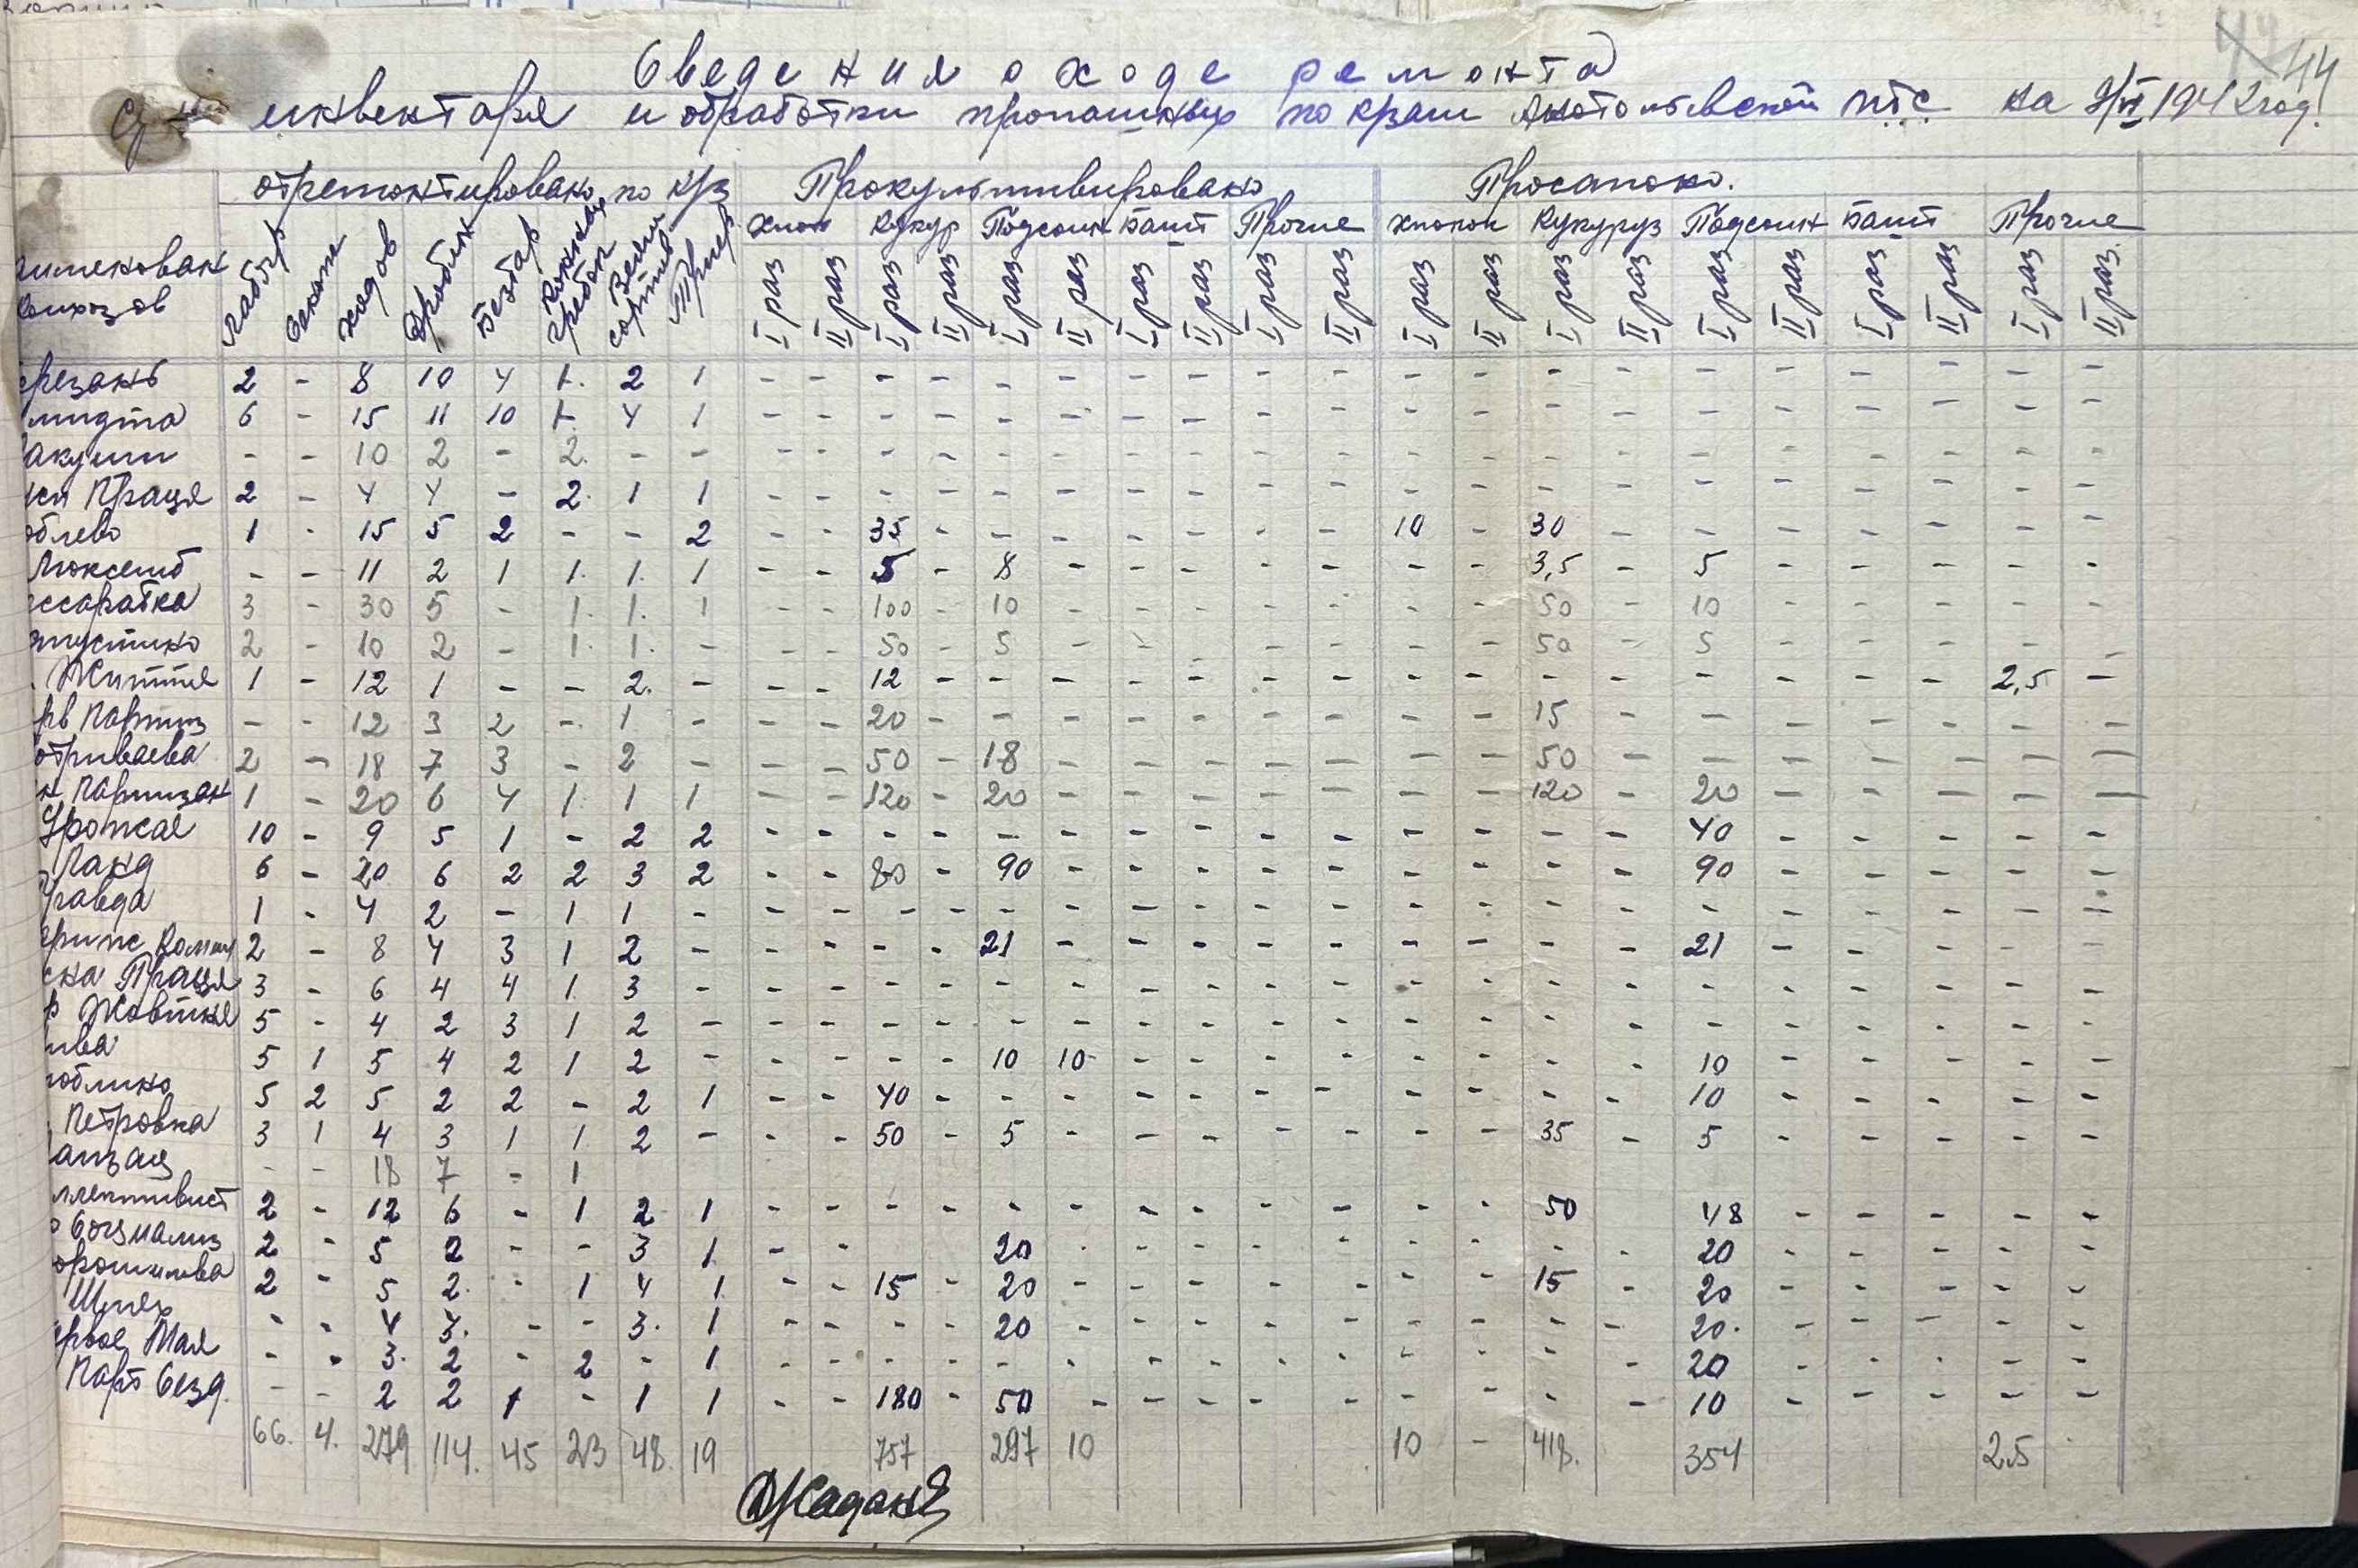 44
Сведения о ходе ремонта
инвентаря и обработки пропашных по кхзам Анатольевской МТС на 9/VI 1942 год.
отремонтировано по кхз Прокультивировано Просапано.
Хлоп Кукур Подсолн Башт Прочие Хлопок Кукуруз Подсолн Башт Прочие
именован колхозов Лабогр Ходов Безтар Конных гребок Веял сортив Триер I раз II раз I раз II раз I раз II раз I раз II раз I раз II раз I раз II раз I раз II раз I раз II раз I раз II раз I раз II раз
ерезань 2 - 8 10 4 1. 2 1 - - - - - - - - - - - - - - - - - - - -
мидта 6 - 15 11 10 1 4 1 - - - - - - - - - - - - - - - - - - - -
акуши - - 10 2 - 2. - - - - - - - - - - - - - - - - - - - - - -
Праця 2 - 4 4 - 2. 1 1 - - - - - - - - - - - - - - - - - - - -
облево 1 - 15 5 2 - - 2 - - 35 - - - - - - - 10 - 30 - - - - - - -
Люксемб - - 11 2 1 1. 1. 1 - - 5 - 8 - - - - - - - 3,5 - 5 - - - - -
ссаратка 3 - 30 5 - 1. 1. 1 - - 100 - 10 - - - - - - - 50 - 10 - - - - -
2 - 10 2 - 1. 1. - - - 50 - 5 - - - - - - - 50 - 5 - - - - -
Життя 1 - 12 1 - - 2. - - - 12 - - - - - - - - - - - - - - - 2,5 -
рв Партиз - - 12 3 2 - 1 - - - 20 - - - - - - - - - 15 - - - - - - -
отриваева 2 - 18 7 3 - 2 - - - 50 - 18 - - - - - - - 50 - - - - - - -
н Партизан 1 - 20 6 4 1 1 1 - - 120 - 20 - - - - - - - 120 - 20 - - - - -
Урожае 10 - 9 5 1 - 2 2 - - - - - - - - - - - - - - 40 - - - - -
Ланд 6 - 20 6 2 2 3 2 - - 80 - 90 - - - - - - - - - 90 - - - - -
Правда 1 - 4 2 - 1 1 - - - - - - - - - - - - - - - - - - - - -
2 - 8 4 3 1 2 - - - - - 21 - - - - - - - - - 21 - - - - -
ска Праця 3 - 6 4 4 1 3 - - - - - - - - - - - - - - - - - - - - -
р Жовтня 5 - 4 2 3 1 2 - - - - - - - - - - - - - - - - - - - - -
ива 5 1 5 4 2 1 2 - - - - - 10 10 - - - - - - - - 10 - - - - -
5 2 5 2 2 - 2 1 - - 40 - - - - - - - - - - - 10 - - - - -
Петровка 3 1 4 3 1 1 2 - - - 50 - 5 - - - - - - - 35 - 5 - - - - -
- - 18 7 - 1
ллективист 2 - 12 6 - 1 2 1 - - - - - - - - - - - - 50 48 - - - - -
о Соцмализ 2 - 5 2 - - 3 1 - - 20 - - - - - - - - - 20 - - - - -
орошилова 2 - 5 2. - 1 4 1 - - 15 - 20 - - - - - - - 15 - 20 - - - - -
Шлях - - 4 3. - - 3. 1 - - - - 20 - - - - - - - - - 20. - - - - -
ервое Мая - - 3. 2 - 2 - 1 - - - - - - - - - - - - - - 20 - - - - -
Парт Сезд. - - 2 2 1 - 1 1 - - 180 - 50 - - - - - - - - - 10 - - - - -
66. 4. 279 114. 45 23 48. 19 757 297 10 10 - 418. 354 2.5